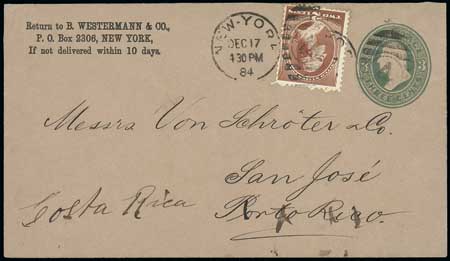 Return to B. WESTERMANN & CO.,
P. O. Box 2306, NEW YORK,
If not delivered within 10 days.
NEW-YORK
DEC 17
430 PM
84
TWO
THREE CENTS
3
Messrs Von Schröter & Co.
San José
Costa Rica
Porto Rico.